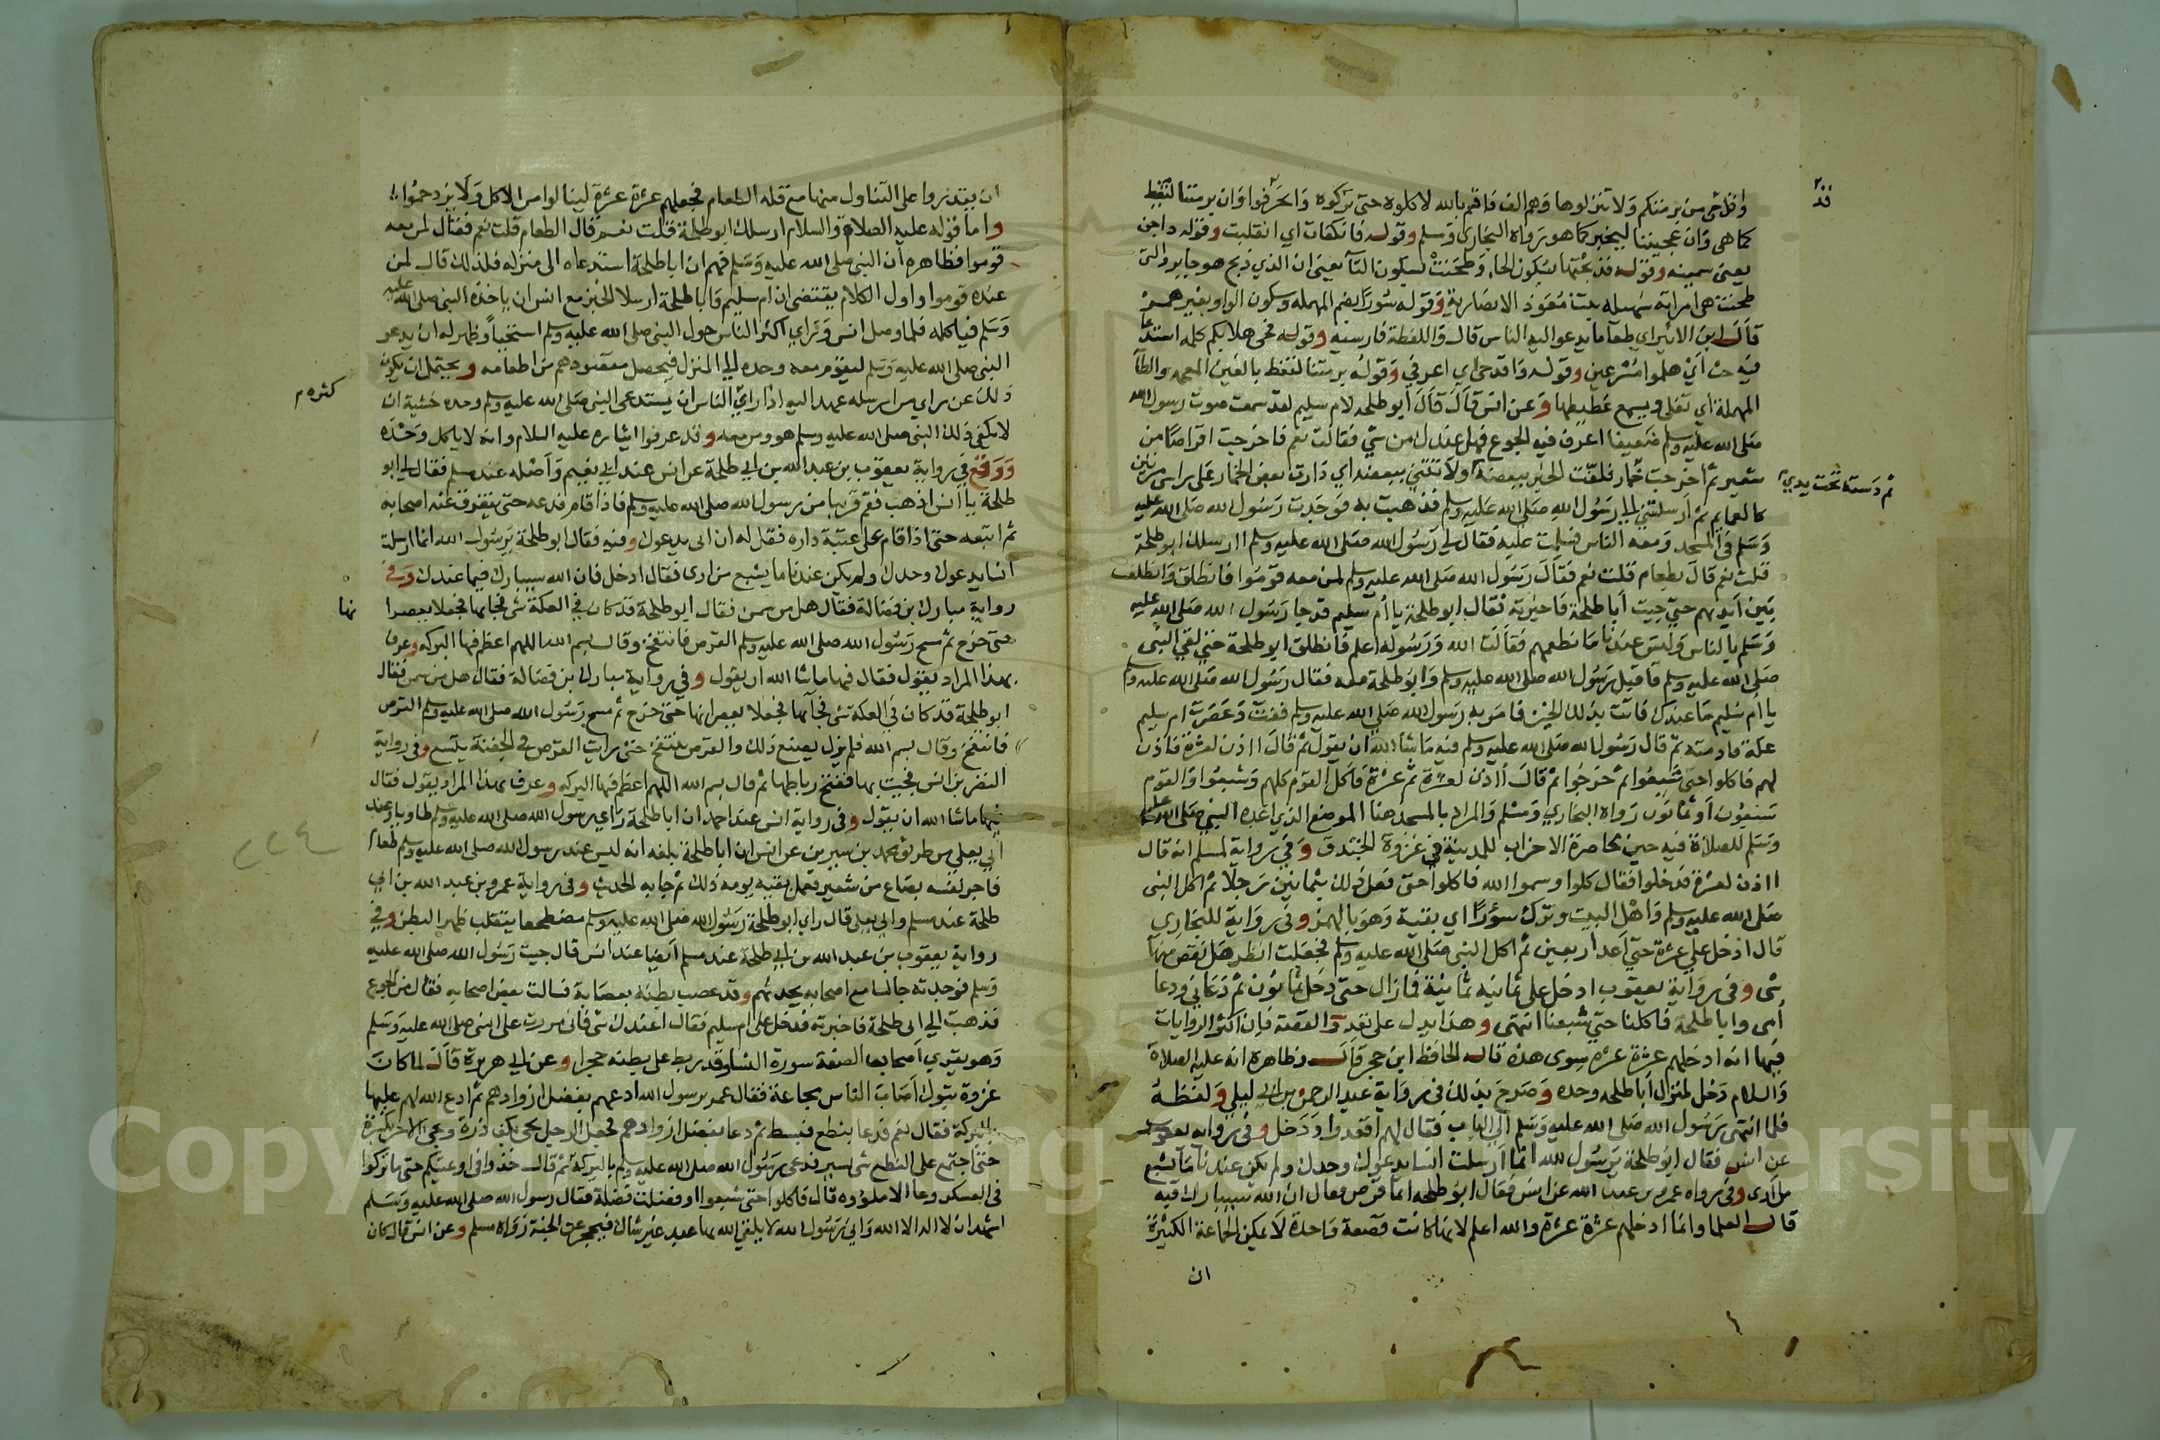 واقدحي من برمتكم ولا تنزلوها وهم الف فاقسم بالله لاكلوه حتى تركوه وانحرفوا وان برمتنا لتغط
قد
كما هي وان عجيننا ليخبز كما هو رواه البخاري ومسلم وقوله فانكفات اي انقلبت وقوله داجن
يعني سمينه وقوله فذبحتها بسكون الحاء وطحنت بسكون التا يعني ان الذي ذبح هو جابر والتى
طحنت هي امراته سهيله بنت معوذ الانصارية وقوله سورا بضم المهمله وسكون الواو بغير همز
قال ابن الاثير اي طعاما يدعوا اليه الناس قال واللفظة فارسيه وقوله فحي هلا بكم كلمه استدعا
فيه حث اي هلموا مسرعين وقوله واقدحي اي اغرفي وقوله برمتنا لتغظ بالغين المعجمه والطا
المهملة اي تغلى ويسمع غطيطها وعن انس قال قال ابو طلحه لام سليم لقد سمعت صوت رسول الله
صلى الله عليه وسلم ضعيفا اعرف فيه الجوع فهل عندك من شي فقالت نعم فاخرجت اقراصا من
شعير ثم اخرجت خمارا فلفت الخبز ببعضه ولاثتني ببعضه اي ادارت بعض الخمار على راسى مرتين
ثم دسته تحت يدي
كالعمايم ثم ارسلتني الى رسول الله صلى الله عليه وسلم فذهبت به فوجدت رسول الله صلى الله عليه
وسلم في المسجد ومعه الناس فسلمت عليه فقال لي رسول الله صلى الله عليه وسلم اارسلك ابو طلحة
قلت نعم قال بطعام قلت نعم فقال رسول الله صلى الله عليه وسلم لمن معه قوموا فانطلق وانطلقت
بين ايديهم حتى جيت ابا طلحة فاخبرته فقال ابو طلحة يا ام سليم قد جا رسول الله صلى الله عليه
وسلم بالناس وليس عندنا ما نطعمهم فقالت الله ورسوله اعلم فانطلق ابو طلحة حتى لقي النبى
صلى الله عليه وسلم فاقبل رسول الله صلى الله عليه وسلم وابو طلحة معه فقال رسول الله صلى الله عليه وسلم
يا ام سليم ما عندك فاتت بذلك الخبز فامر به رسول الله صلى الله عليه وسلم ففت وعصرت ام سليم
عكة فادمته ثم قال رسول الله صلى الله عليه وسلم فيه ما شا الله ان يقول ثم قال اذن لعشرة فاذن
لهم فاكلوا حتى شبعوا ثم خرجوا ثم قال اذن لعشرة ثم عشرة فاكل القوم كلهم وشبعوا والقوم
سبعون او ثمانون رواه البخاري ومسلم والمراد بالمسجد هنا الموضع الذي اعده النبي صلى الله عليه
وسلم للصلاة فيه حين محاصرة الاحزاب للمدينة في غزوة الخندق وفي رواية لمسلم انه قال
ااذن لعشرة فدخلوا فقال كلوا وسموا الله فاكلوا حتى فعل ذلك بثمانين رجلا ثم اكل النبى
صلى الله عليه وسلم واهل البيت وترك سؤرا اي بقية وهو بالهمز وفي رواية للبخاري
قال ادخل علي عشرة حتى اعد اربعين ثم اكل النبى صلى الله عليه وسلم فجعلت انظر هل نقص منها
شى وفي رواية يعقوب ادخل علي ثمانيه ثمانية فما زال حتى دخل ثمانون ثم دعانى ودعا
أمى وابا طلحة فاكلنا حتى شبعنا انتهى وهذا يدل على تعدد القصة فان اكثر الروايات
فيها انه ادخلهم عشرة عشرة سوى هذه قاله الحافظ ابن حجر قال وظاهره انه عليه الصلاة
والسلام دخل لمنزل ابا طلحه وحده وصرح بذلك في رواية عبد الرحمن بن ابى ليلي ولفظه
فلما انتهى رسول الله صلى الله عليه وسلم الى الباب فقال لهم اقعدوا ودخل وفي روايه يعقوب
عن انس فقال ابو طلحة يرسول الله انما ارسلت انسا يدعوك وحدك ولم يكن عندنا ما يشبع
من ارى وفي رواه عمرو بن عبد الله عن انس فقال ابو طلحه انما قرص فقال ان الله سيبارك فيه
قال العلما وانما ادخلهم عشرة عشرة والله اعلم لانها كانت قصعة واحدة لا يمكن الجماعة الكثيرة
ان
ان يقدروا على التناول منها مع قله الطعام فجعلهم عشرة عشرة لينالوا من الاكل ولا يزدحموا
واما قوله عليه الصلاة والسلام ارسلك ابو طلحة قلت نعم قال الطعام قلت نعم فقال لمن معه
قوموا فظاهره ان النبى صلى الله عليه وسلم فهم ان ابا طلحة استدعاه الى منزله فلذلك قال لمن
عنده قوموا واول الكلام يقتضى ان ام سليم وابا طلحة ارسلا الخبز مع انس ان ياخذه النبى صلى الله عليه
وسلم فياكله فلما وصل انس وراى اكثر الناس حول النبى صلى الله عليه وسلم استحيا وظهر له ان يدعو
النبى صلى الله عليه وسلم ليقوم معه وحده الى المنزل فيحصل مقصودهم من اطعامه ويحتمل ان يكون
كثره م
ذلك عن راي من ارسله عهد اليه اذا راى الناس ان يستدعى النبى صلى الله عليه وسلم وحده خشية ان
لا يكفى ذلك النبى صلى الله عليه وسلم هو ومن معه وقد عرفوا ايثاره عليه السلام وانه لا ياكل وحده
ووقع في رواية يعقوب بن عبد الله بن ابى طلحة عن انس عند ابي نعيم واصله عند مسلم فقال لى ابو
طلحة يا انس اذهب فقم قريبا من رسول الله صلى الله عليه وسلم فاذا قام فدعه حتى يتفرق عنه اصحابه
ثم اتبعه حتى اذا قام على عتبة داره فقل له ان ابى يدعوك وفيه فقال ابو طلحة يرسول الله انما ارسلت
انسا يدعوك وحدك ولم يكن عندنا ما يشبع من ارى فقال ادخل فان الله سيبارك فيما عندك وفي
رواية مبارك بن فضالة فقال هل من سمن فقال ابو طلحة قد كان في العكة شى فجا بها فجعلا يعصرا
نها
حتى خرج ثم مسح رسول الله صلى الله عليه وسلم القرص فانتفخ وقال بسم الله اللهم اعظم فيها البركه وعرف
بهذا المراد بقوله فقال فيها ما شا الله ان يقول وفي رواية مبارك بن فضالة فقال هل من سمن فقال
ابو طلحة قد كان في العكة شى فجا بها فجعلا يعصرانها حتى خرج ثم مسح رسول الله صلى الله عليه وسلم القرص
فانتفخ وقال بسم الله فلم يزل يصنع ذلك والقرص ينتفخ حتى رايت القرص في الجفنة يتسع وفي رواية
النضر بن انس فجيت بها ففتح رباطها ثم قال بسم الله اللهم اعظم فيها البركه وعرف بهذا المراد بقوله فقال
فيها ما شا الله ان يقول وفي رواية انس عند احمد ان ابا طلحة راى رسول الله صلى الله عليه وسلم طاويا وعند
ابي يعلى من طريق محمد بن سيرين عن انس ان ابا طلحة بلغه انه ليس عند رسول الله صلى الله عليه وسلم طعام
فاجر نفسه بصاع من شعير فعمل بقيه يومه ذلك ثم جا به الحديث وفي رواية عمرو بن عبد الله بن ابي
طلحة عند مسلم وابي يعلى قال راى ابو طلحة رسول الله صلى الله عليه وسلم مضطجعا يتقلب ظهرا لبطن وفي
رواية يعقوب بن عبد الله بن ابي طلحة عند مسلم ايضا عند انس قال جيت رسول الله صلى الله عليه
وسلم فوجدته جالسا مع اصحابه يحدثهم وقد عصب بطنه بعصابة فسالت بعض اصحابه فقال من الجوع
فذهبت الى ابى طلحة فاخبرته فدخل على ام سليم فقال اعندك شى فانى مررت على النبى صلى الله عليه وسلم
وهو يقري اصحاب الصفة سورة النسا وقد ربط على بطنه حجرا وعن ابى هريرة قال لما كان
غزوة تبوك اصاب الناس مجاعة فقال عمر يرسول الله ادعهم بفضل ازوادهم ثم ادع الله لهم عليها
بالبركة فقال نعم فدعا بنطع فبسط ثم دعا بفضل ازوادهم فجعل الرجل يجى بكف ذرة ويجى الاخر بكسرة
حتى اجتمع على النطع شى يسير فدعى رسول الله صلى الله عليه وسلم بالبركة ثم قال خذوا في اوعيتكم حتى ما تركوا
فى العسكر وعا الا ملؤوه قال فاكلوا حتى شبعوا وفضلت فضلة فقال رسول الله صلى الله عليه وسلم
اشهد ان لا اله الا الله واني رسول الله لا يلقى الله بها عبد غير شاك فيحجر عن الجنة رواه مسلم وعن انس قال كان